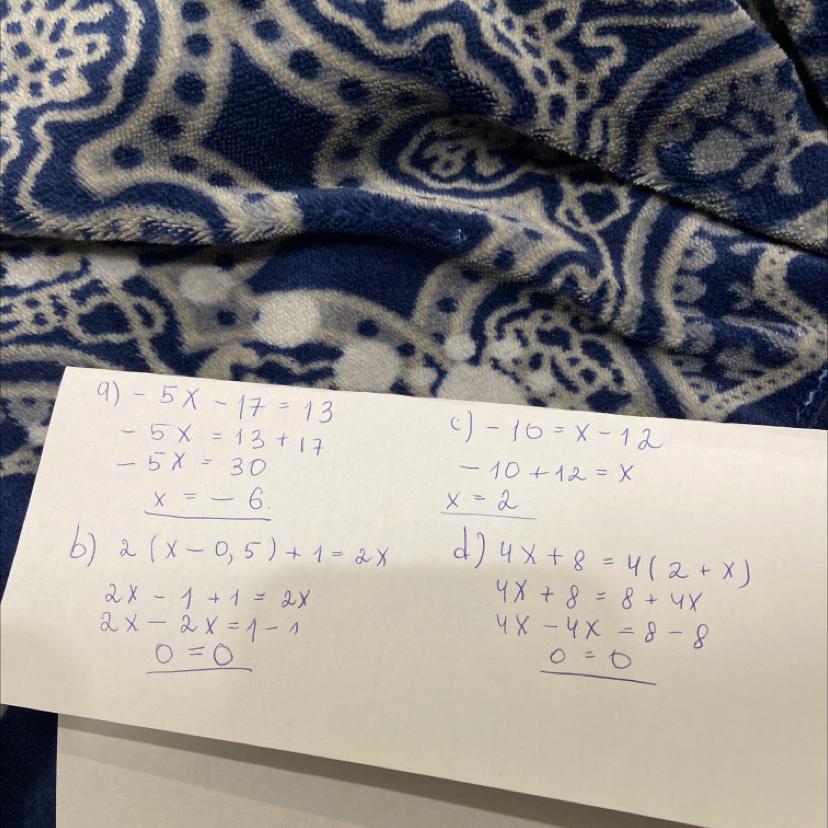 a) - 5x - 17 = 13
- 5x = 13 + 17
- 5x = 30
x = - 6.
b) 2 (x - 0,5) + 1 = 2x
2x - 1 + 1 = 2x
2x - 2x = 1 - 1
0 = 0
c) - 10 = x - 12
- 10 + 12 = x
x = 2
d) 4x + 8 = 4( 2 + x)
4x + 8 = 8 + 4x
4x - 4x = 8 - 8
0 = 0